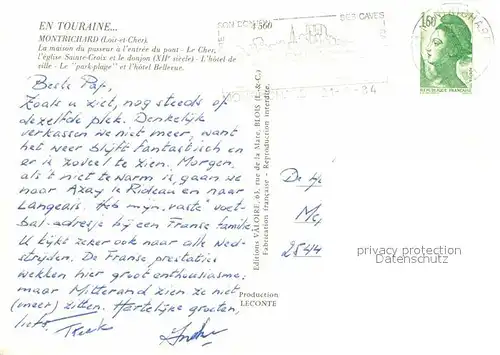 EN TOURAINE...
MONTRICHARD (Loir-et-Cher).
La maison du passeur à l'entrée du pont - Le Cher,
l'église Sainte-Croix et le donjon (XIIe siècle) - L'hôtel de
ville - Le "park-plage" et l'hôtel Bellevue.
41560
SON DON
DES CAVES
1,60
REPUBLIQUE FRANÇAISE
Beste Pap,
Zoals u ziet, nog steeds op
dezelfde plek. Denkelijk
verkassen we niet meer, want
het weer blijft fantastisch en
er is zoveel te zien. Morgen,
als 't niet te warm is, gaan we
naar Azay le Rideau en naar
Langeais. Heb mijn "vaste" voet-
bal-adresje bij een Franse familie.
U kijkt zeker ook naar alle wed-
strijden. De Franse prestaties
wekken hier groot enthousiasme;
maar Mitterand zien ze niet
(meer) zitten. Hartelijke groeten,
liefs.
Editions VALOIRE, 63, rue de la Mare, BLOIS (L.-&-C.)
Fabrication française - Reproduction interdite.
Production
LECONTE
De He
2544
privacy protection
Datenschutz